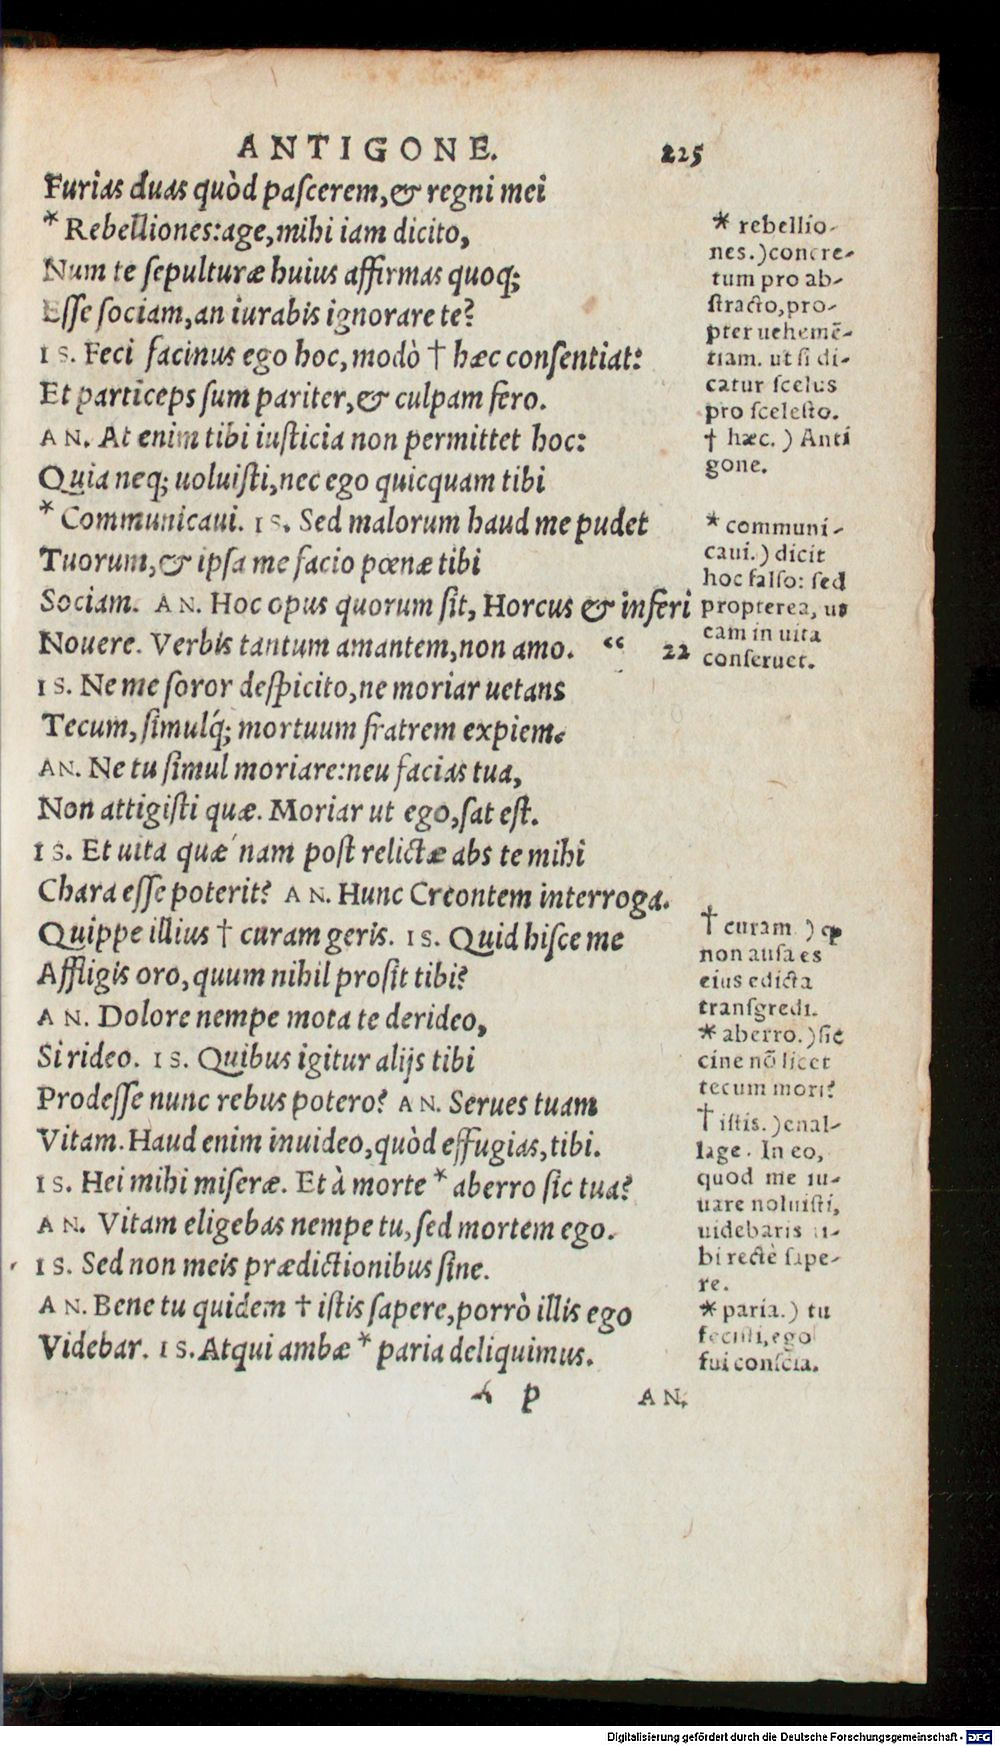 ANTIGONE. 225
Furias duas quòd pascerem,& regni mei
* Rebelliones:age,mihi iam dicito,
Num te sepulturæ huius affirmas quoq;
Esse sociam,an iurabis ignorare te?
IS. Feci facinus ego hoc,modò † hæc consentiat:
Et particeps sum pariter,& culpam fero.
AN. At enim tibi iusticia non permittet hoc:
Quia neq; uoluisti,nec ego quicquam tibi
* Communicaui. IS. Sed malorum haud me pudet
Tuorum,& ipsa me facio pœnæ tibi
Sociam. AN. Hoc opus quorum sit, Horcus & inferi
Nouere. Verbis tantum amantem,non amo. “ 22
IS. Ne me soror despicito,ne moriar uetans
Tecum,simulq́; mortuum fratrem expiem.
AN. Ne tu simul moriare:neu facias tua,
Non attigisti quæ. Moriar ut ego,sat est.
IS. Et uita quæ nam post relictæ abs te mihi
Chara esse poterit? AN. Hunc Creontem interroga.
Quippe illius † curam geris. IS. Quid hisce me
Affligis oro,quum nihil prosit tibi?
AN. Dolore nempe mota te derideo,
Si rideo. IS. Quibus igitur alijs tibi
Prodesse nunc rebus potero? AN. Serues tuam
Vitam.Haud enim inuideo,quòd effugias,tibi.
IS. Hei mihi miseræ. Et à morte * aberro sic tua?
AN. Vitam eligebas nempe tu,sed mortem ego.
IS. Sed non meis prædictionibus sine.
AN. Bene tu quidem † istis sapere,porrò illis ego
Videbar. IS. Atqui ambæ * paria deliquimus.
p AN.
* rebellio-
nes.)concre-
tum pro ab-
stracto,pro-
pter uehemē-
tiam. ut si di-
catur scelus
pro scelesto.
† hæc.) Anti
gone.
* communi-
caui.) dicit
hoc falso: sed
propterea, ut
eam in uita
conseruet.
† curam.) ꝙ
non ausa es
eius edicta
transgredi.
* aberro.)sic
cine nō licet
tecum mori?
† istis.)enal-
lage. In eo,
quod me iu-
uare noluisti,
uidebaris ti-
bi rectè sape-
re.
* paria.) tu
fecisti,ego
fui conscia.
Digitalisierung gefördert durch die Deutsche Forschungsgemeinschaft - DFG